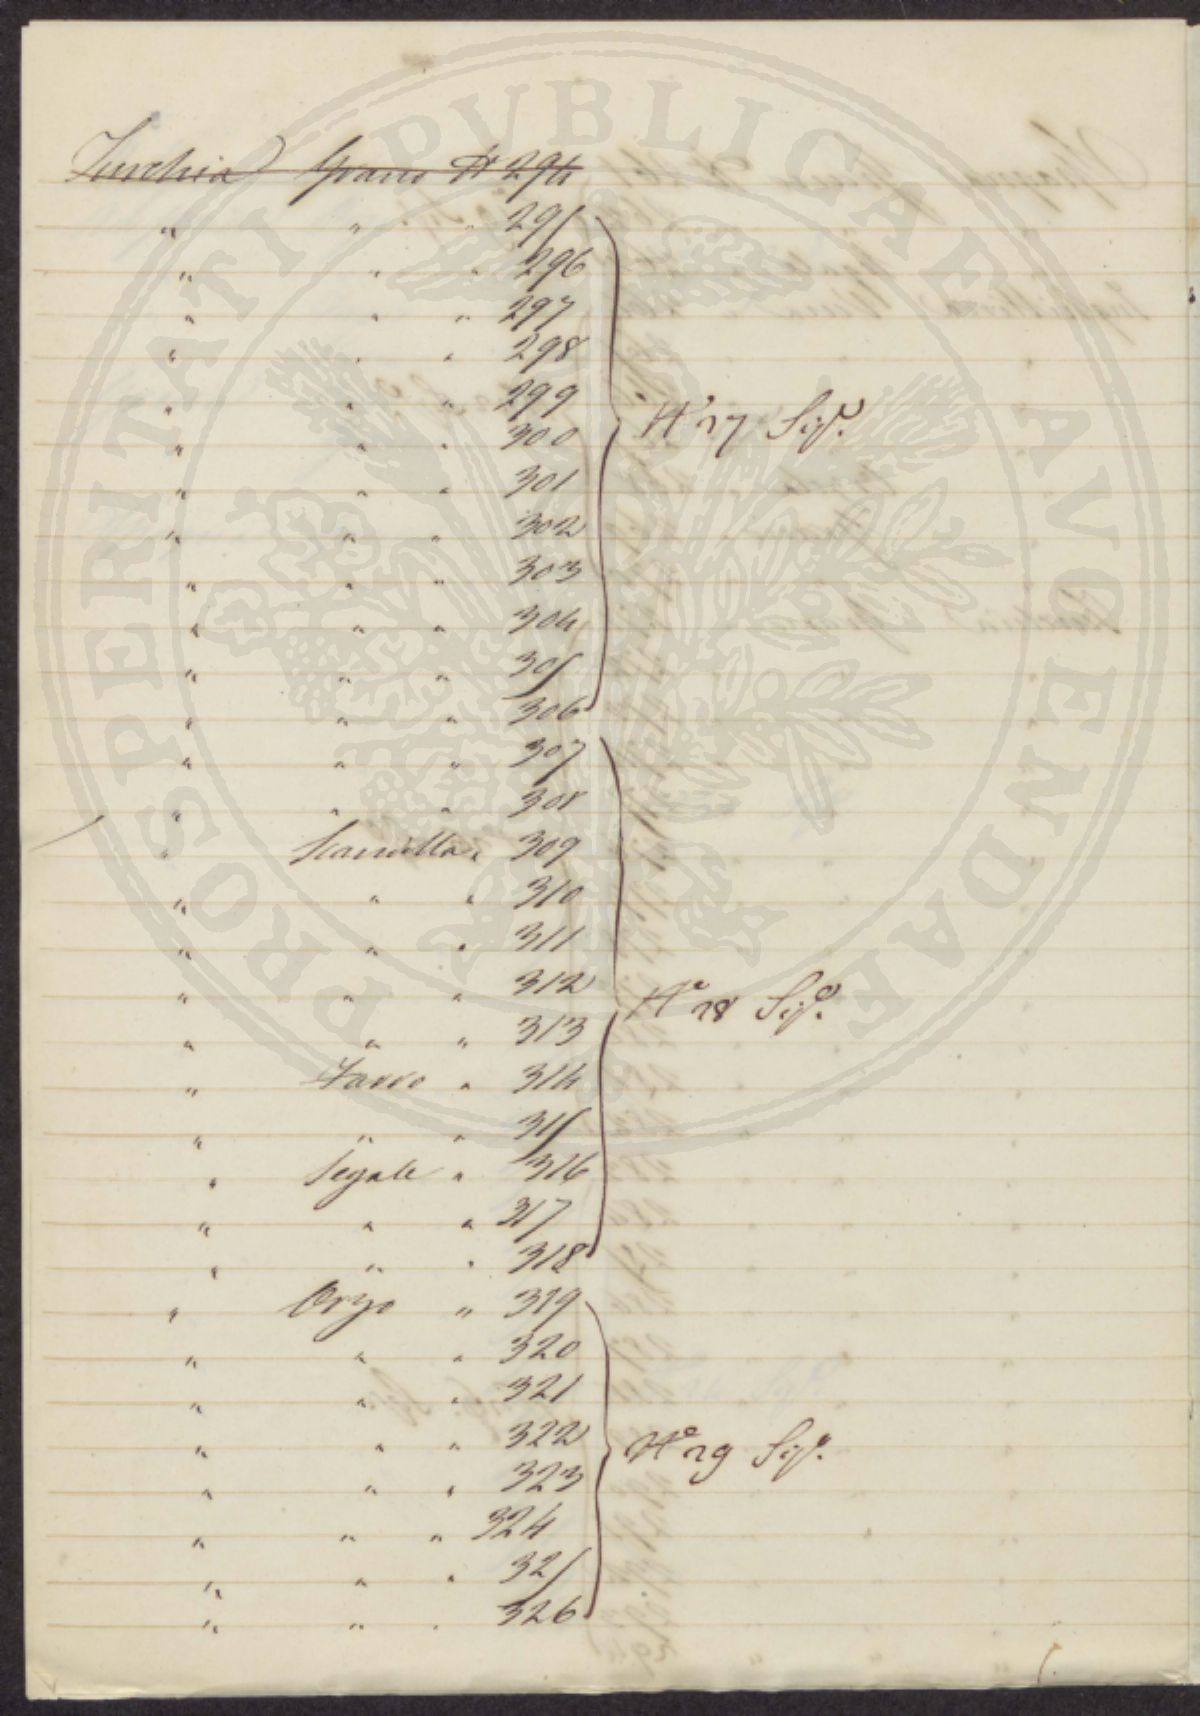 Turchia Grano N° 294
" " " 295
" " " 296
" " " 297
" " " 298
" " " 299
" " " 300
" " " 301
" " " 302
" " " 303
" " " 304
" " " 305
" " " 306
N° 27
" " " 307
" " " 308
" " 309
" " " 310
" " " 311
" " " 312
" " " 313
" Farro " 314
" " " 315
" Segale " 316
" " " 317
" " " 318
N° 28
" Orzo " 319
" " " 320
" " " 321
" " " 322
" " " 323
" " " 324
" " " 325
" " " 326
N° 29
PROSPERITATI PUBLICAE AVGENDAE